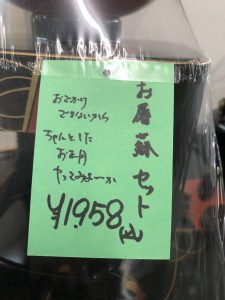 お屠蘇セット
おでかけ
できないから
ちゃんとした
お正月
やってみよーか
¥1,958